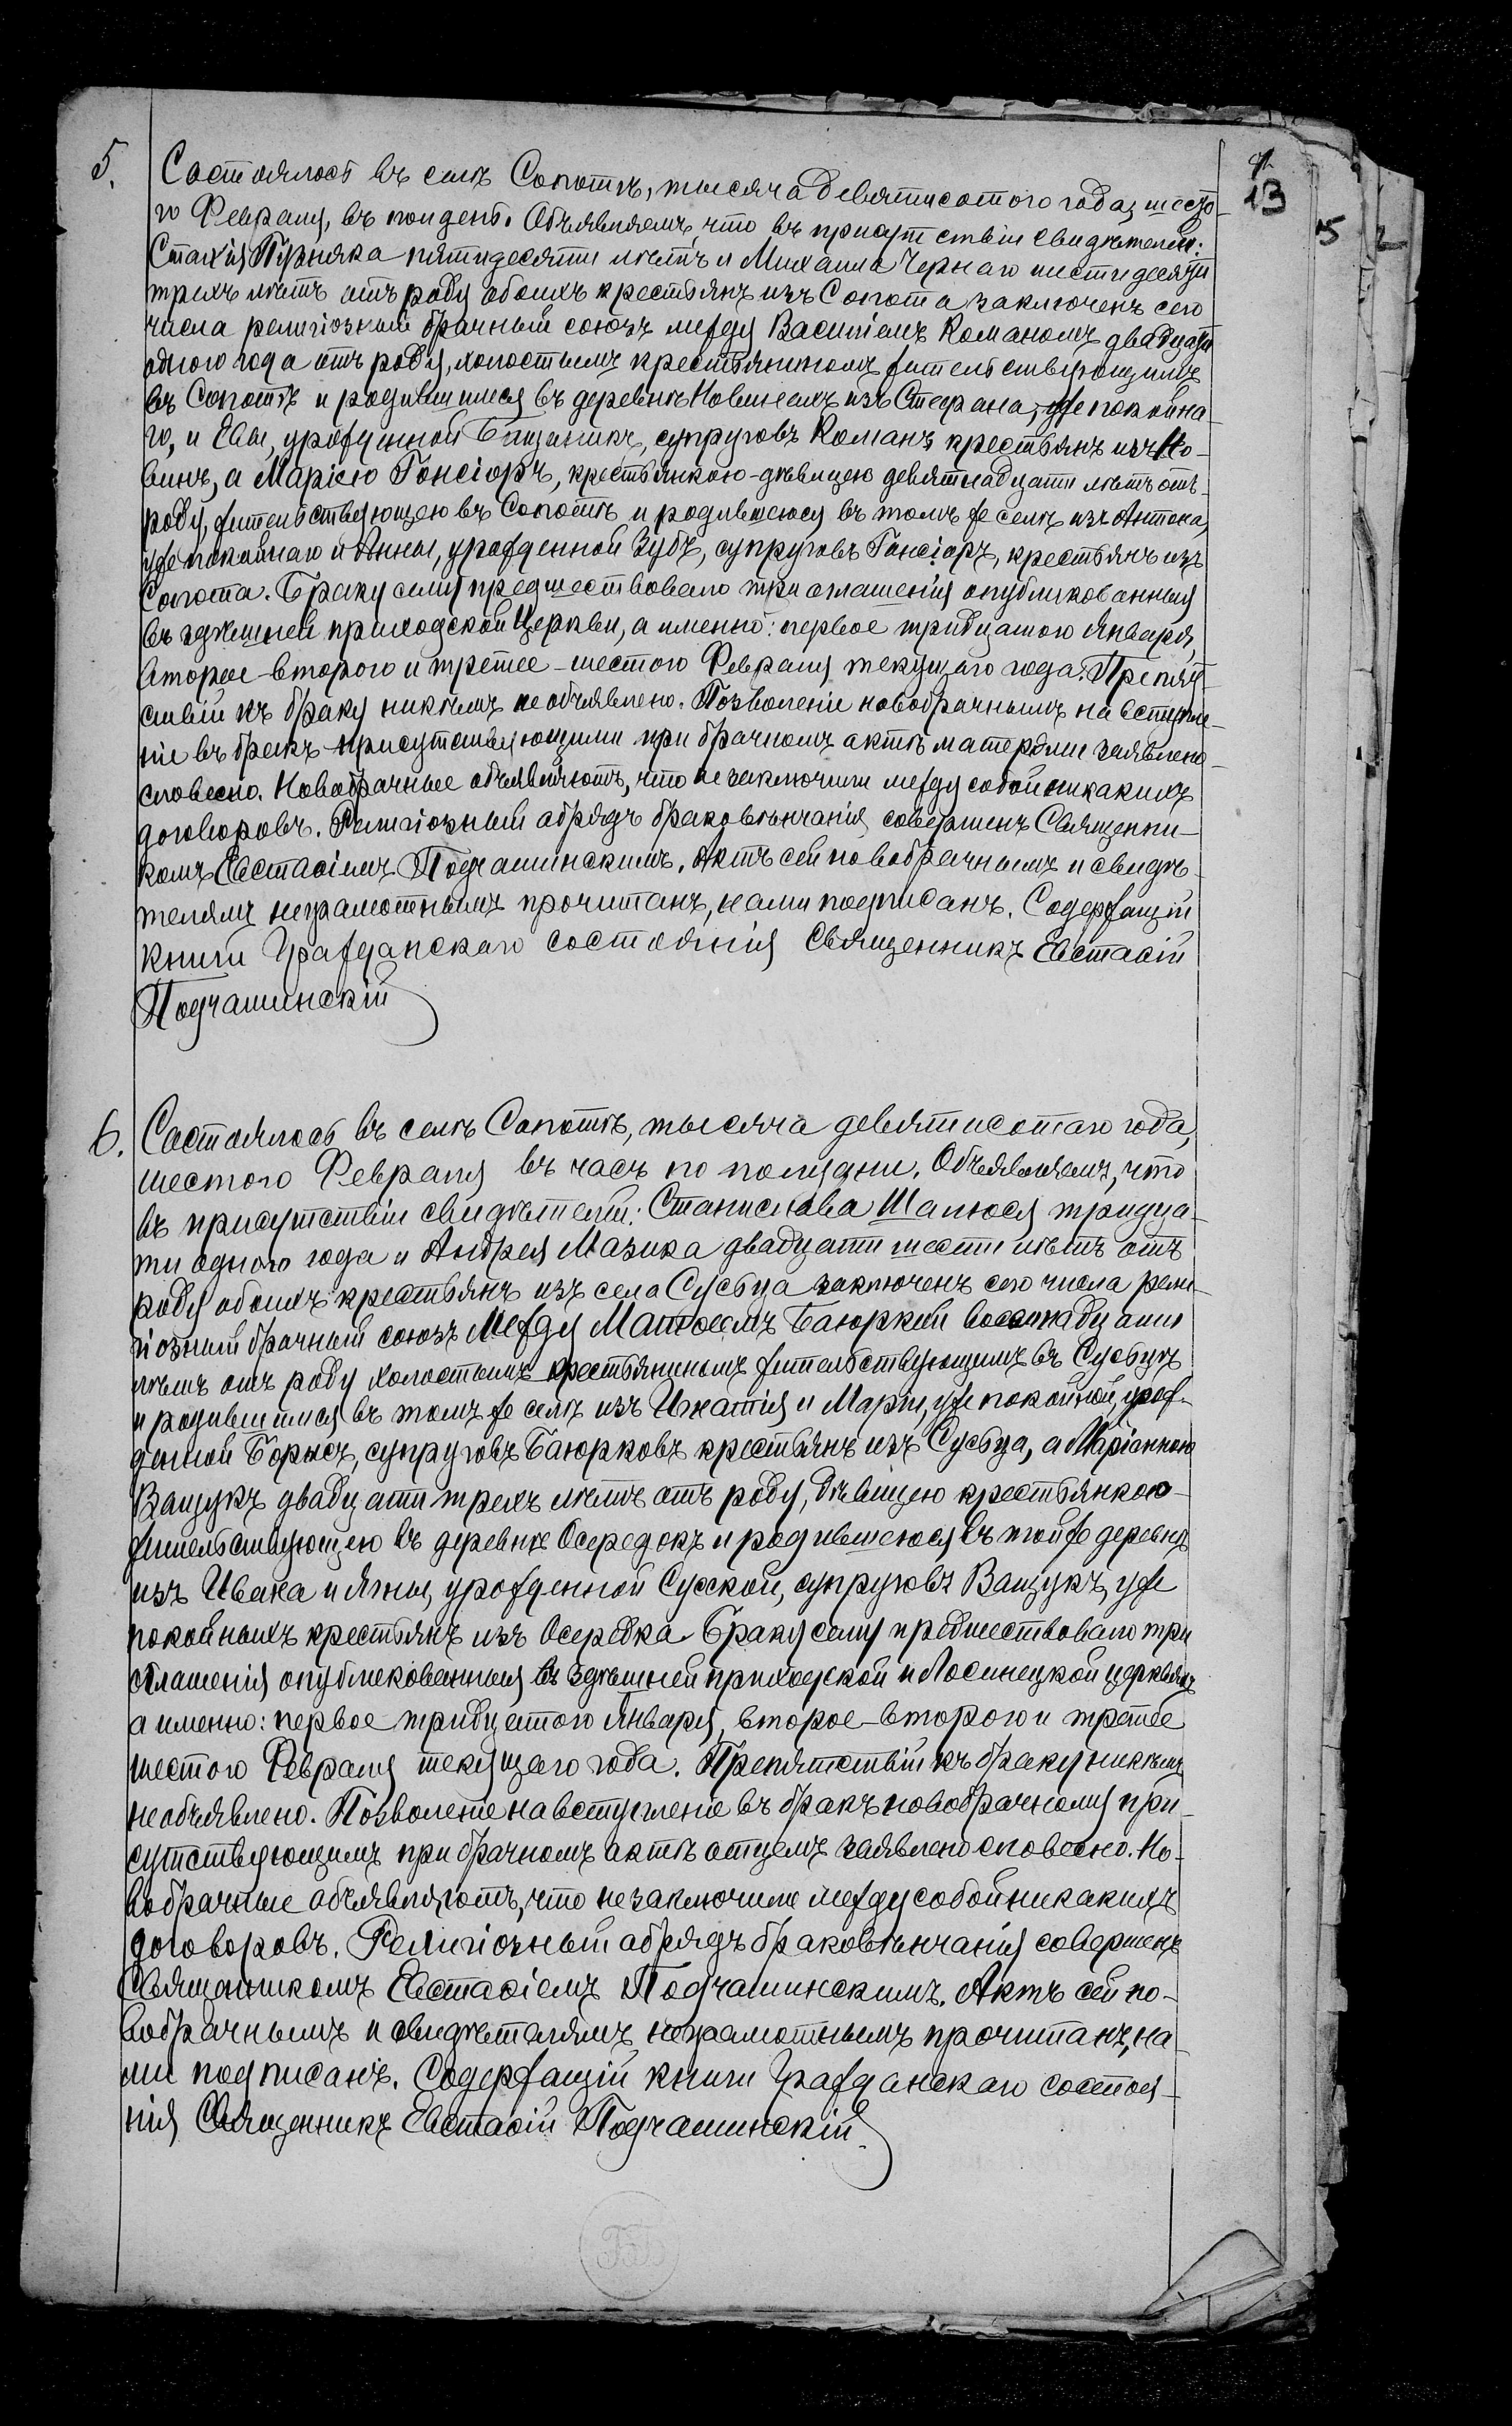 5.
Состоялось въ селѣ Сопотѣ, тысяча девятисотого года, шесто-
го Февраля, въ полдень. Объявляемъ, что въ присутствіи свидѣтелей:
Стахія Пузняка пятидесяти лѣтъ и Михаила Чернаго шестидесяти
трехъ лѣтъ отъ роду обоихъ крестьянъ изъ Сопота заключенъ сего
числа религіозный брачный союзъ между Василіемъ Команомъ двадцати
одного года отъ роду, холостымъ крестьяниномъ жительствующимъ
въ Сопотѣ и родившимся въ деревнѣ Новинахъ изъ Стефана, уже покойна-
го, и Евы, урожденной супруговъ Команъ крестьянъ изъ Но-
винъ, а Маріею Гонсіоръ, крестьянкою-дѣвицею девятнадцати лѣтъ отъ
роду, жительствующею въ Сопотѣ и родившеюся въ томъ же селѣ изъ Антона,
уже покойнаго и Анны, урожденной Зубъ, супруговъ Гонсіоръ, крестьянъ изъ
Сопота. Браку сему предшествовало три оглашенія опубликованныя
въ здѣшней приходской Церкви, а именно: первое тридцатого Января,
второе-второго и третее-шестого Февраля текущаго года. Препят-
ствій къ браку никѣмъ не объявлено. Позволеніе новобрачнымъ на вступле-
ніе въ бракъ присутствующими при брачномъ актѣ матерями заявлено
словесно. Новобрачные объявляютъ, что не заключили между собой никакихъ
договоровъ. Религіозный обрядъ браковѣнчанія совершенъ Священни-
комъ Евстаѳіемъ Подчашинскимъ. Актъ сей новобрачнымъ и свидѣ-
телямъ неграмотнымъ прочитанъ, нами подписанъ. Содержащій
книги Гражданскаго состоянія Священникъ Евстаѳій
Подчашинскій
6.
Состоялось въ селѣ Сопотѣ, тысяча девятисотаго года,
шестого Февраля въ часъ по полудни. Объявляемъ, что
въ присутствіи свидѣтелей: Станислава Шалюся тридца-
ти одного года и Андрея Мазика двадцати шести лѣтъ отъ
роду обоихъ крестьянъ изъ села Сусьца заключенъ сего числа рели-
гіозный брачный союзъ Между Матѳеемъ Баюркой восемнадцати
лѣтъ отъ роду холостымъ крестьяниномъ жительствующимъ въ Сусьцѣ
и родившимся въ томъ же селѣ изъ Игнатія и Маріи, уже покойной, урож-
денной Борысъ, супруговъ Баюрковъ крестьянъ изъ Сусьца, а Маріанною
Ващукъ двадцати трехъ лѣтъ отъ роду, дѣвицею крестьянкою-
жительствующею въ деревнѣ Осередокъ и родившеюся въ той же деревнѣ
изъ Ивана и Ягны, урожденной Сусской, супруговъ Ващукъ, уже
покойныхъ крестьянъ изъ Осередка. Браку сему предшествовало три
оглашенія опубликованныя въ здѣшней приходской и Лосинецкой церквяхъ
а именно: первое тридцатого Января, второе-второго и третее
шестого Февраля текущаго года. Препятствій къ браку никѣмъ
не объявлено. Позволеніе на вступленіе въ бракъ новобрачному при-
сутствующимъ при брачномъ актѣ отцемъ заявлено словесно. Но-
вобрачные объявляютъ, что не заключили между собой никакихъ
договоровъ. Религіозный обрядъ браковѣнчанія совершенъ
Священникомъ Евстаѳіемъ Подчашинскимъ. Актъ сей но-
вобрачнымъ и свидѣтелямъ неграмотнымъ прочитанъ, на-
ми подписанъ. Содержащій книги Гражданскаго состоя-
нія Священникъ Евстаѳій Подчашинскій
13
5
2